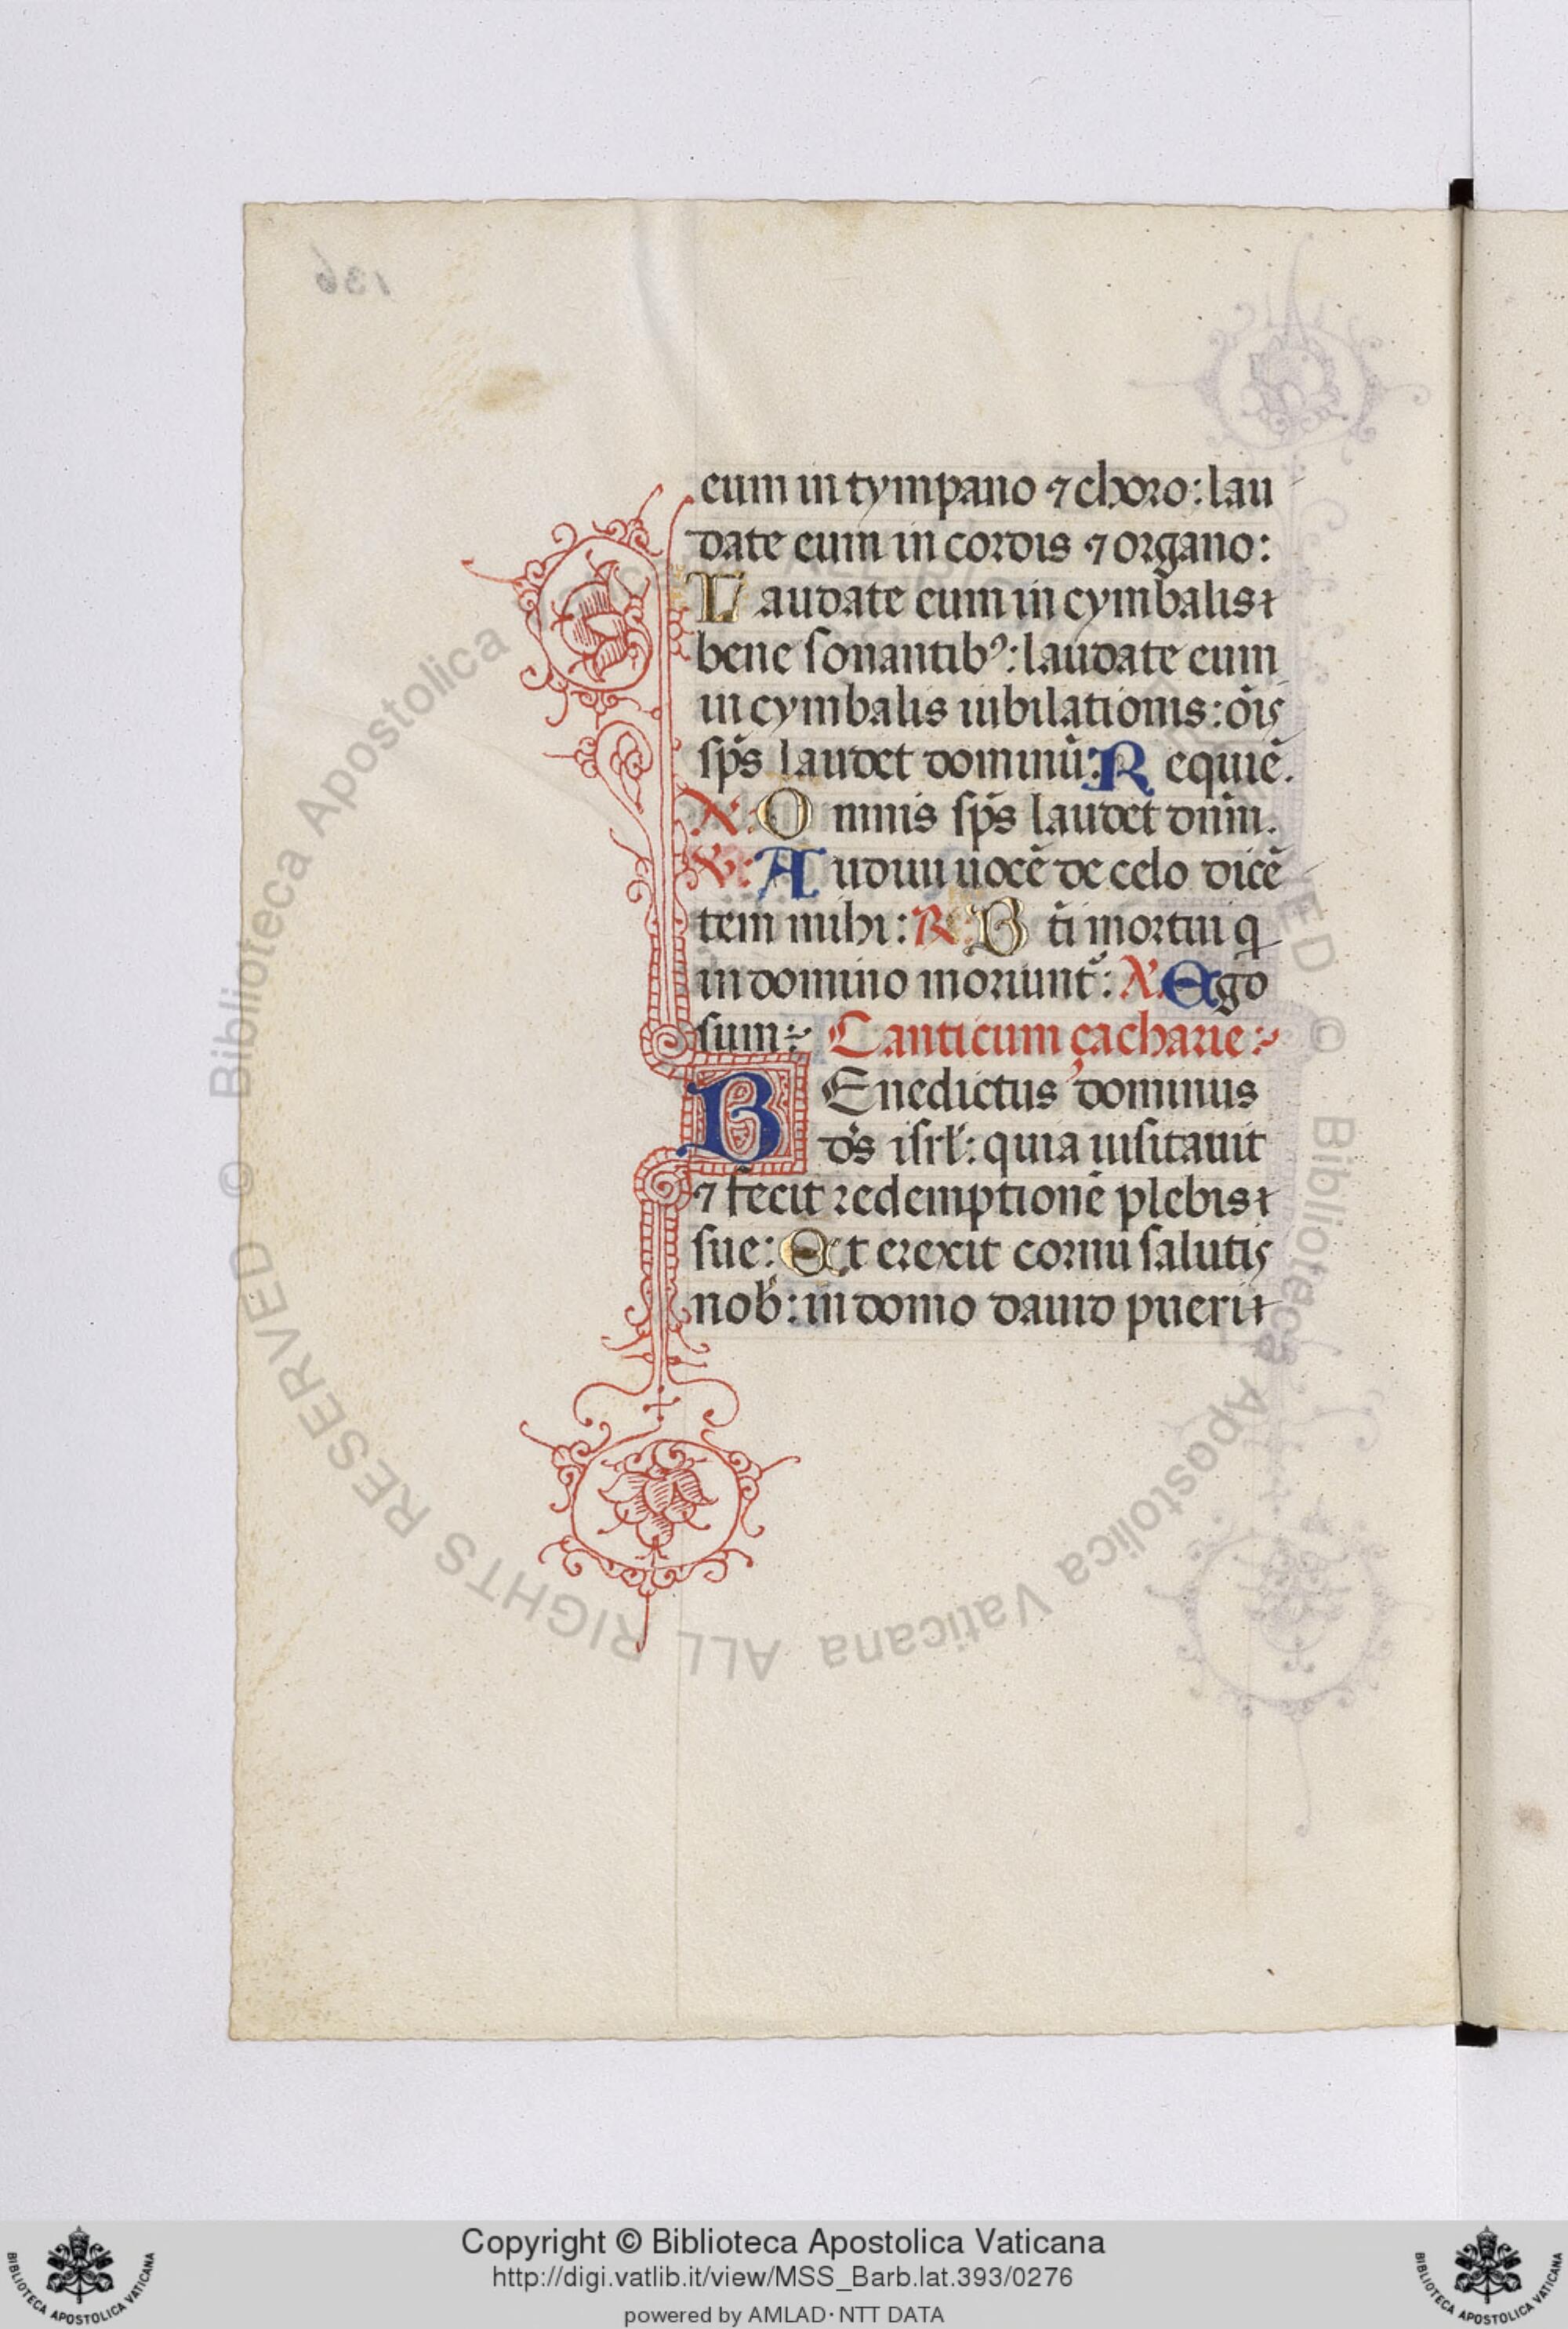 eum in tympano ⁊ choro: lau
date eum in cordis ⁊ organo:
Laudate eum in cymbalis
bene sonantibꝰ: laudate eum
in cymbalis iubilationis: oĩs
sp̃s laudet dominũ: Requiẽ.
A: Omnis sp̃s laudet dñm.
V: Audiui uocẽ de celo dicẽ
tem mihi: R: Bt̃i mortui q̃
in domino moriunt᷑: A. Ego
sum: Canticum çacharie:
BEnedictus dominus
dẽs isrl̃: quia uisitauit
⁊ fecit redemptionẽ plebis
sue: Et erexit cornu salutis
nob̃: in domo dauid pueri
136
© Biblioteca Apostolica Vaticana ALL RIGHTS RESERVED
Copyright © Biblioteca Apostolica Vaticana
http://digi.vatlib.it/view/MSS_Barb.lat.393/0276
powered by AMLAD·NTT DATA
BIBLIOTECA APOSTOLICA VATICANA
BIBLIOTECA APOSTOLICA VATICANA